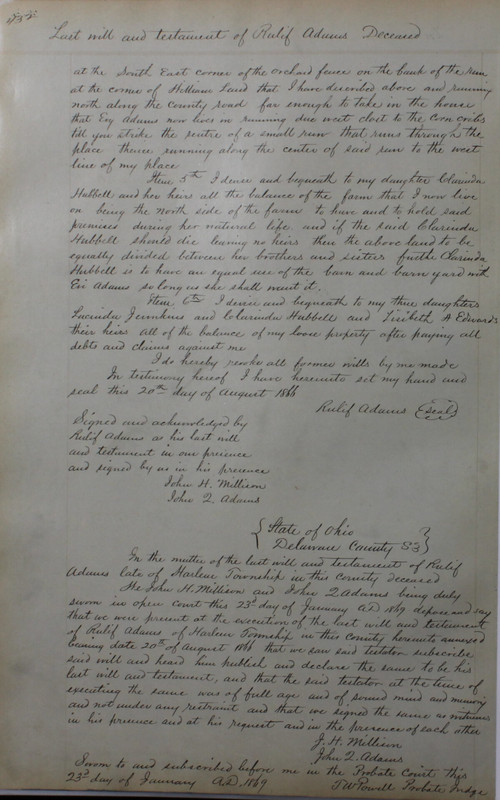 Last will and testament of Rulif Adams Deceased
at the South East corner of the orchard fence on the bank of the run
at the corner of Williams Land that I have described above and running
north along the County road far enough to take in the house
that Eny Adams now lives in running due west close to the Corn cribs
till you strike the centre of a small run that runs through the
place thence running along the center of said run to the west
line of my place
Item 5th I devise and bequeath to my daughter Clarinda
Hubbell and her heirs all the balance of the farm that I now live
on being the North side of the farm to have and to hold said
premises during her natural life and if the said Clarinda
Hubbell should die leaving no heirs then the above land to be
equally divided between her brothers and sisters further Clarinda
Hubbell is to have an equal use of the barn and barn yard with
Adams so long as she shall want it.
Item 6th I devise and bequeath to my three daughters
Lucinda Jenkins and Clarinda Hubbell and A Edwards
their heirs all of the balance of my loose property after paying all
debts and claims against me
I do hereby revoke all former wills by me made
In testimony hereof I have hereunto set my hand and
seal this 20th day of August 1866
Rulif Adams (Seal)
Signed and acknowledged by
Rulif Adams as his last will
and testament in our presence
and signed by us in his presence
John H. Millison
John Q. Adams
{State of Ohio
Delaware County SS}
In the matter of the last will and testament of Rulif
Adams late of Harlem Township in this County deceased
We John H. Millison and John Q Adams being duly
sworn in open court this 23d day of January A.D. 1869 depose and say
that we were present at the execution of the last will and testament
of Rulif Adams of Harlem Township in this county hereunto annexed
bearing date 20th of August 1866 that we saw said testator subscribe
said will and heard him publish and declare the same to be his
last will and testament, and that the said testator at the time of
executing the same was of full age and of sound mind and memory
and not under any restraint and that we signed the same as witnesses
in his presence and at his request and in the presence of each other
J. H. Millison
John Q. Adams
Sworn to and subscribed before me in the Probate Court this
23d day of January A.D. 1869 T W Powell Probate Judge